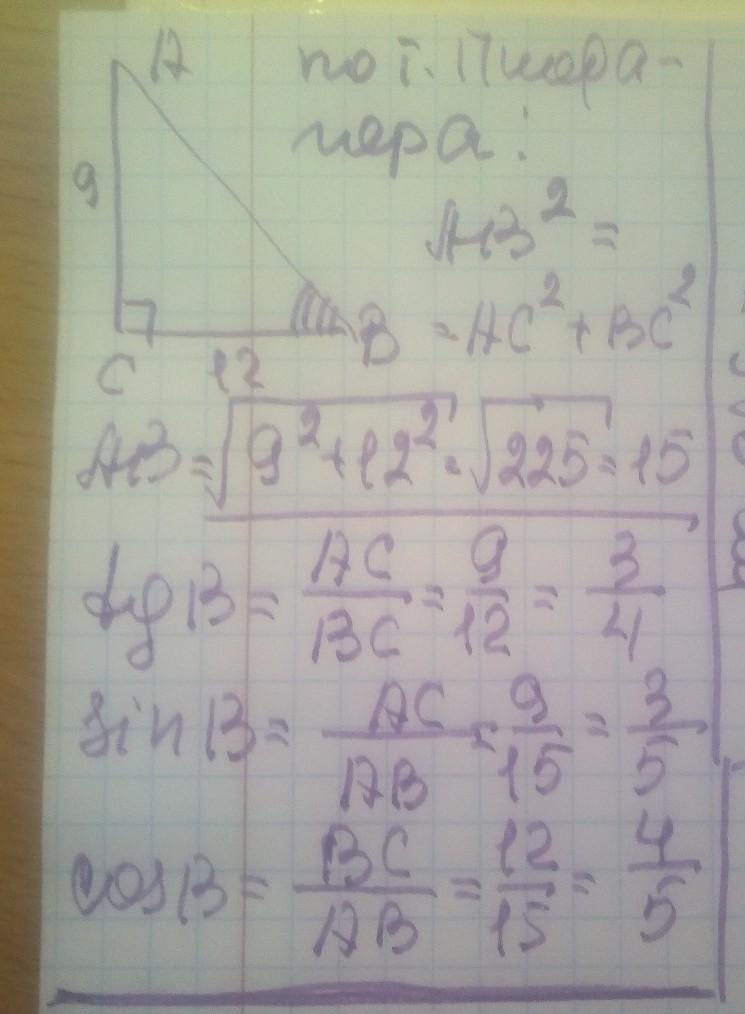 A
по т. Пифаго-
гора:
9
AB² =
= AC² + BC²
B
C
12
AB = √9² + 12² = √225 = 15
tg B = AC/BC = 9/12 = 3/4
sin B = AC/AB = 9/15 = 3/5
cos B = BC/AB = 12/15 = 4/5